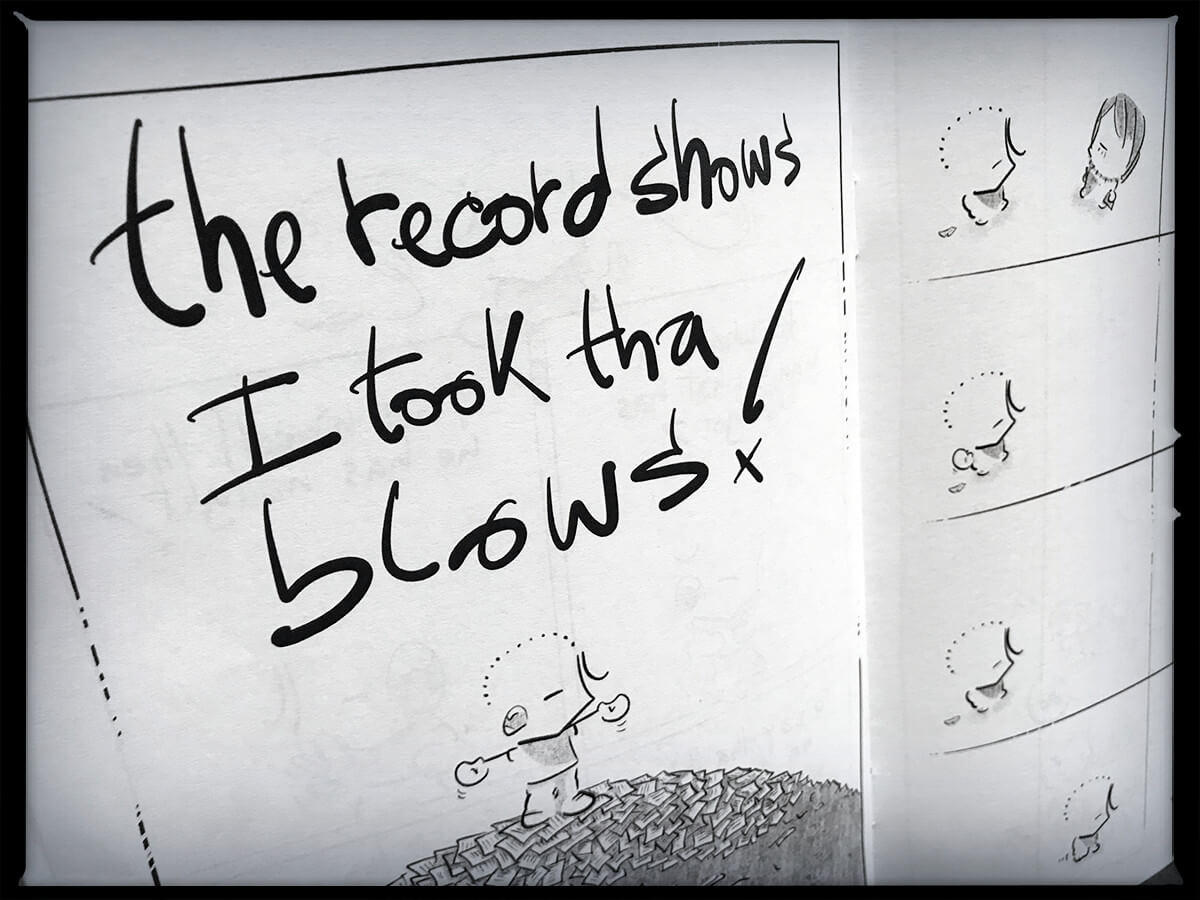 the record shows
I took tha
blows!